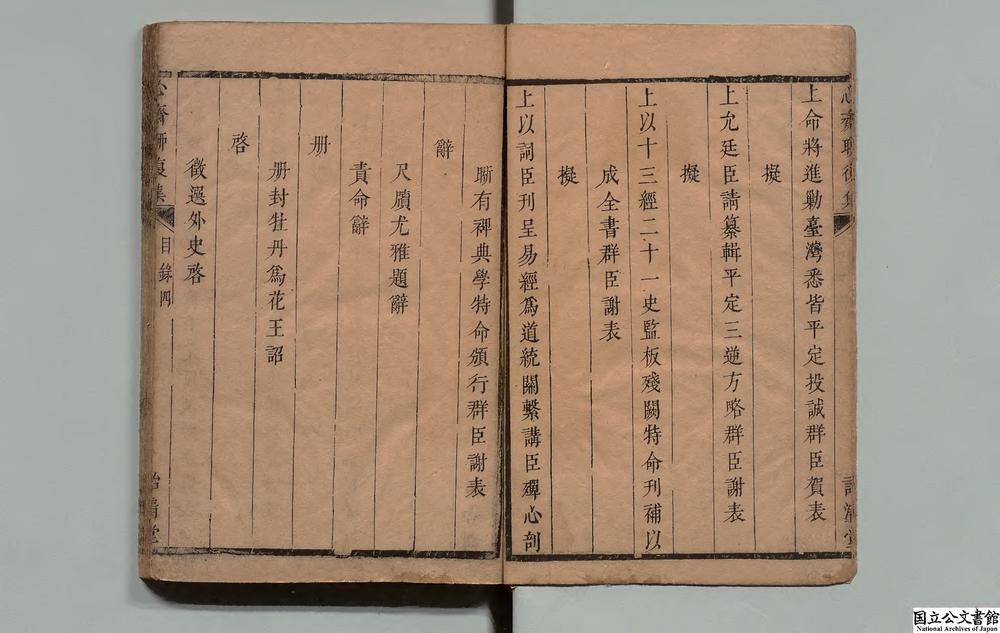 上命將進勦臺灣悉皆平定投誠群臣賀表
擬
上允廷臣請纂輯平定三逆方略群臣謝表
擬
上以十三經二十一史監板殘闕特命刊補以
成全書群臣謝表
擬
上以詞臣刊呈易經爲道統關繫講臣殫心剖
晣有裨典學特命頒行群臣謝表
辭
尺牘尤雅題辭
責命辭
册
册封牡丹爲花王詔
啓
徵選外史啓
心齋聊復集
目錄四
詒清堂
国立公文書館
National Archives of Japan